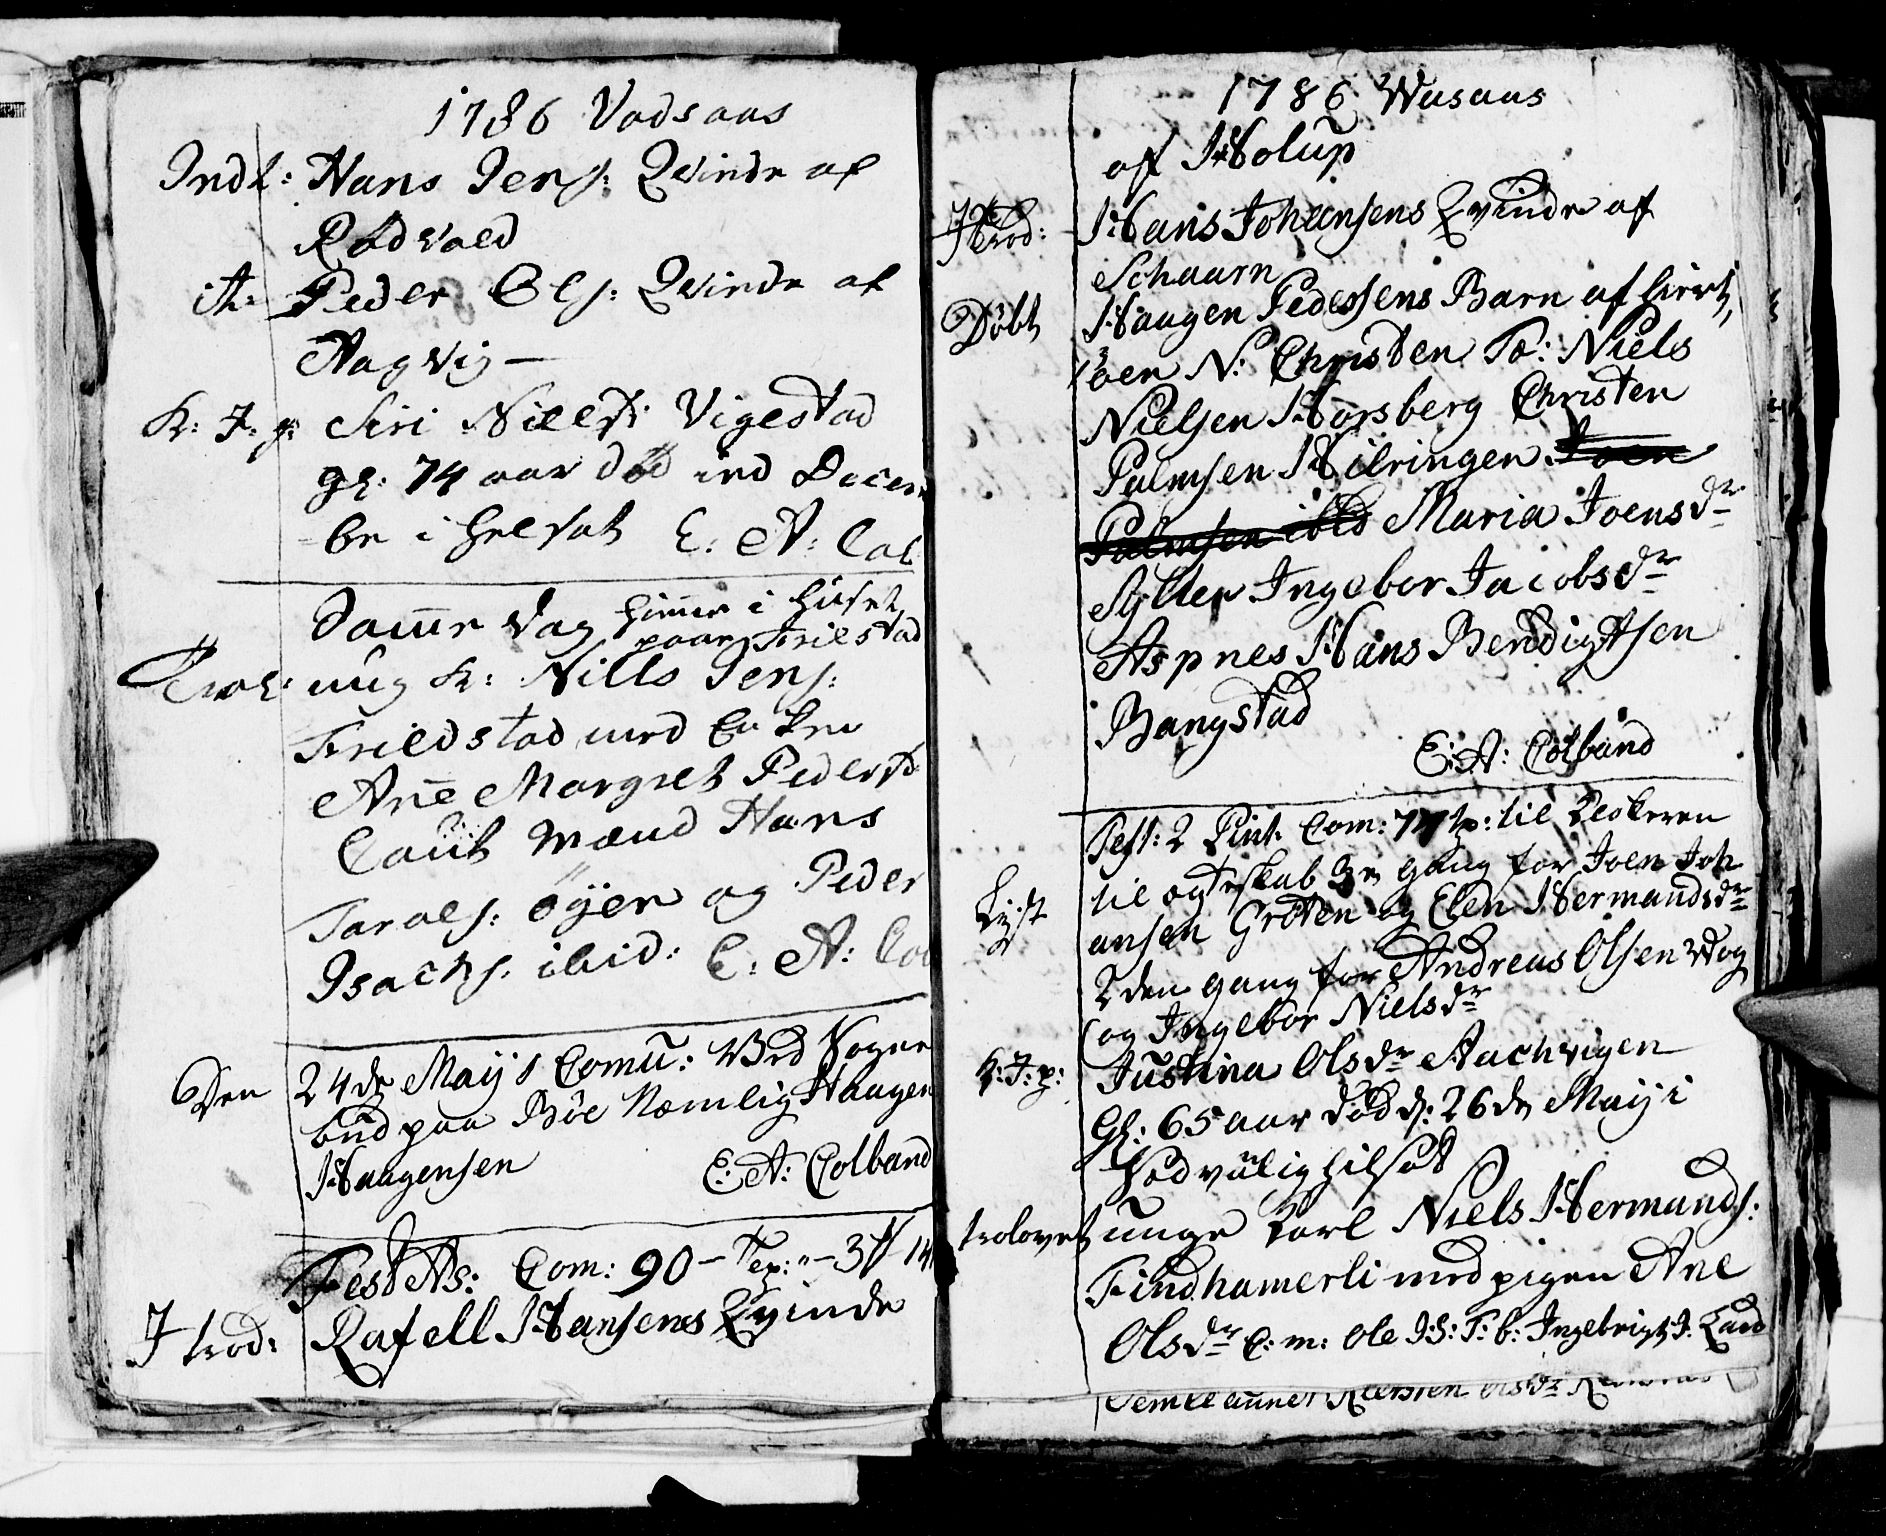 1786 Vadsaas
Indl: Hans Jens: Qvinde af
Rødvold
it: Peder Ols: Qvinde af
Aagvig —
K: J: p: Siri Nielsd: Vigestad
gl: 74 aar død ind Decem
be i helsot E: A: Col
Samme Dag himme i Huset
paa Frielstad
Trol: ung K: Nills Jens:
Frieldstad med Enken
Ane Margret Pedersd:
Caut mænd Hans
Taraels: Øijen og Peder
Isachs: ibid: E: A: Col
Den 24de Maij's Comu: Ved Sogne
bud paa Böe Næmlig Haagen
Haagensen E: A: Colband
Fest As: Com: 90 — 3
J trod: Rafell Hansens Qvinde
1786 Wasaas
af Holup
J trod: Hans Johansens Qvinde af
Schaarn
Døbt Haagen Pedersens Barn af hiert,
öen N: Christen Fa: Niels
Nielsen Horsberg Christen
Palmsen Hilringen Joen
Palmsen ibid Maria Joensdr
Sylten Ingebor Jacobsdr
Aspnes Hans Bendigtsen
Bangstad
E: A: Colband
Fest: 2 Pint. Com: 77 p: til Klokeren
Lyst til Egteskab 3de Gang for Joen Joh
ansen Grøten og Elen Hermandsdr
2den gang for Andreas Olsen Wog
og Ingebor Nielsdr
K: J: p: Justina Olsdr Aachvigen
Gl: 65 aar død d: 26de Maij i
Sædvanlig hilsot
trolovet unge Karl Niels Hermands:
Findhamerli med pigen Ane
Olsdr C: m: Ole IS: F: b: Ingebrigt J. Land